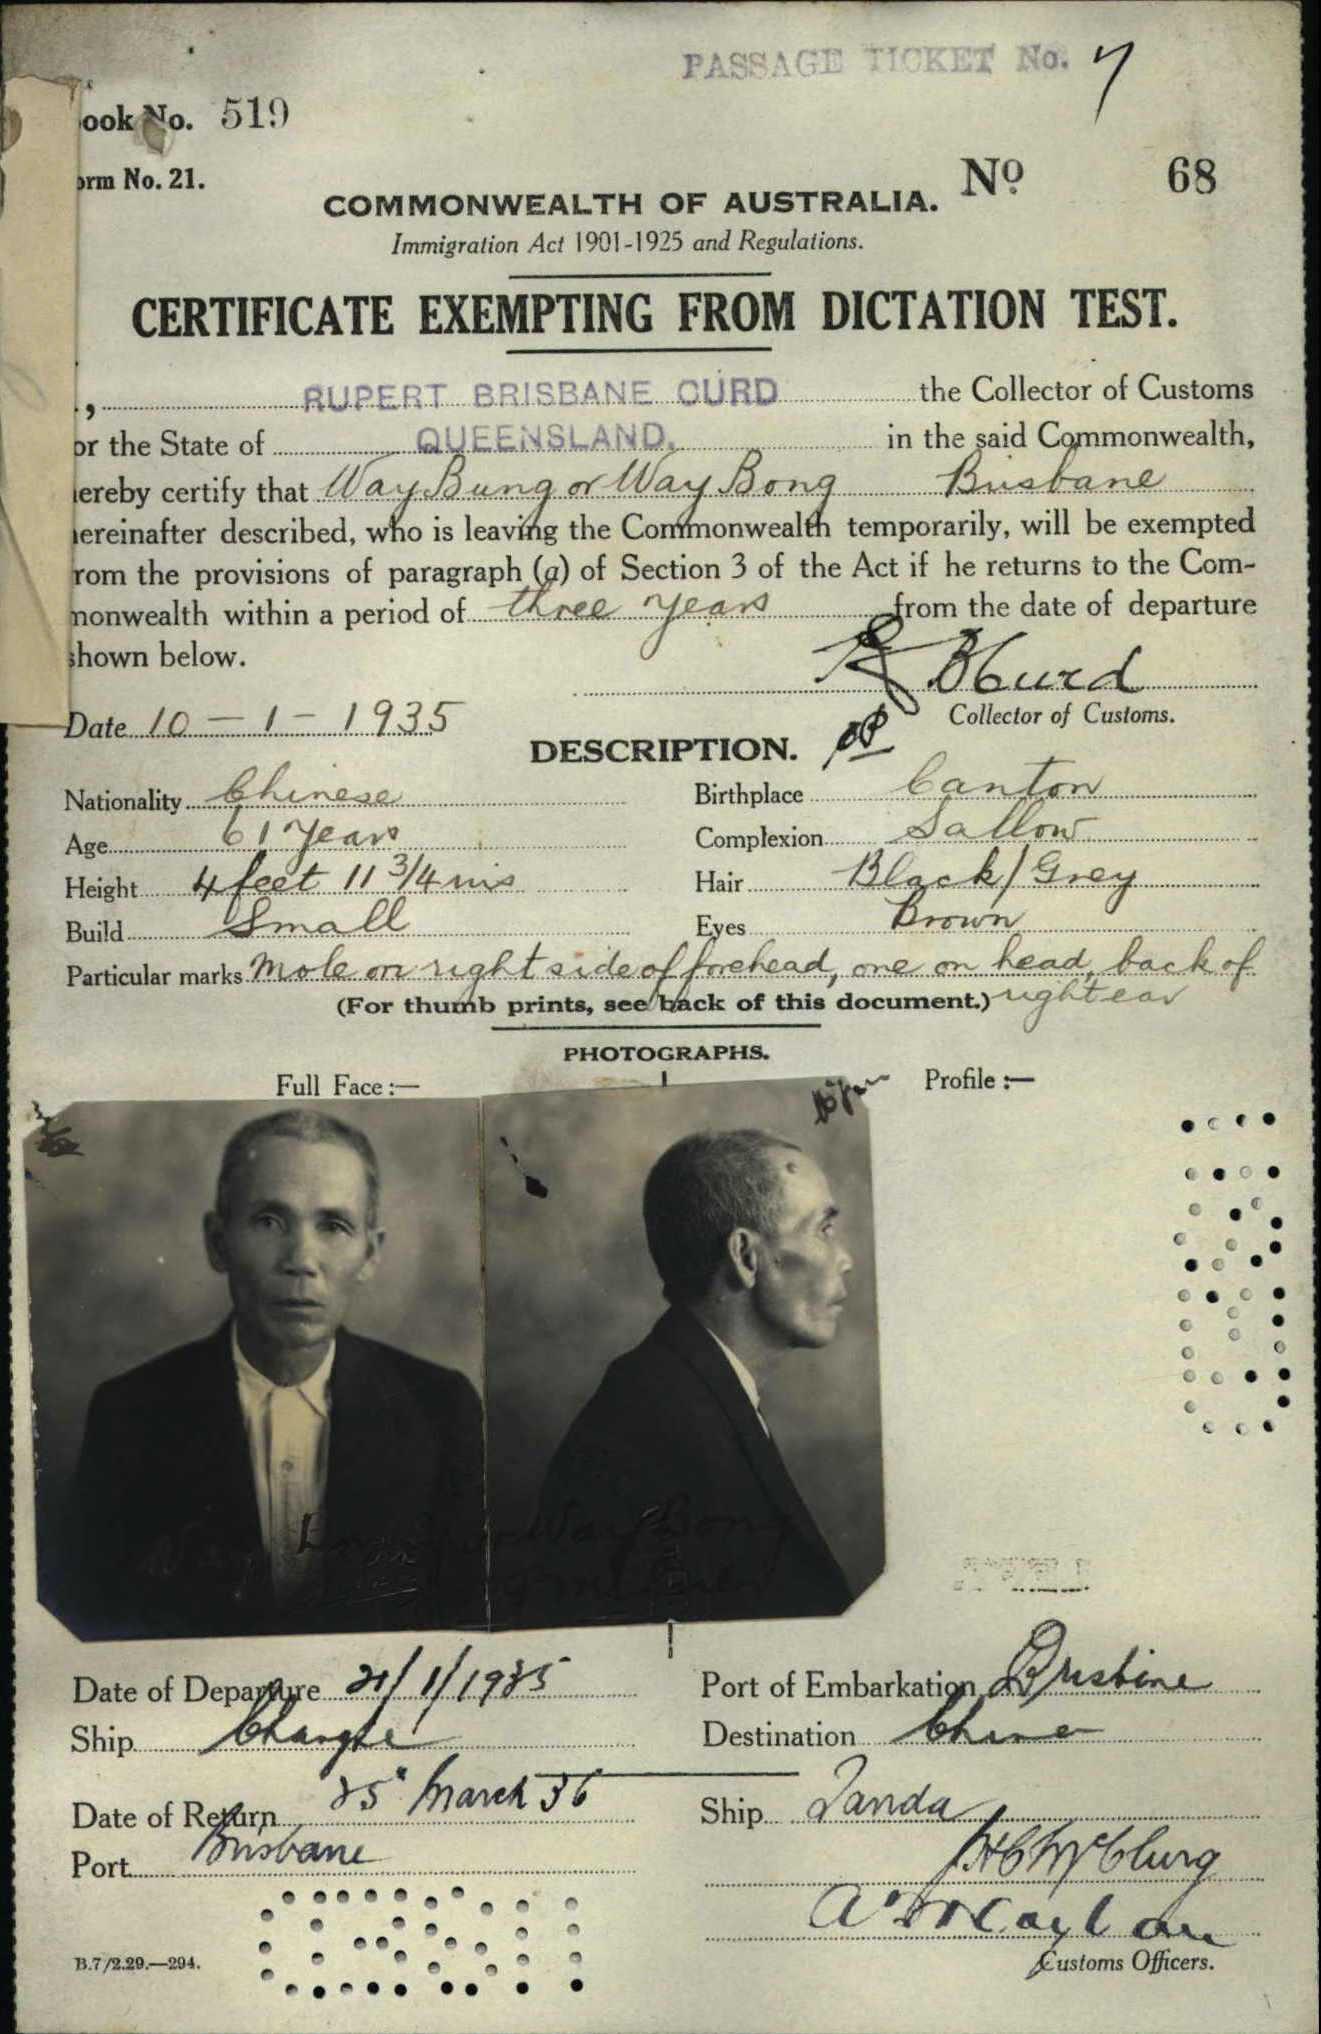 PASSAGE TICKET No. 7
ook No. 519
orm No. 21.
No 68
COMMONWEALTH OF AUSTRALIA.
Immigration Act 1901-1925 and Regulations.
CERTIFICATE EXEMPTING FROM DICTATION TEST.
, RUPERT BRISBANE CURD the Collector of Customs
or the State of QUEENSLAND. in the said Commonwealth,
ereby certify that Way Bung or Way Bong Brisbane
ereinafter described, who is leaving the Commonwealth temporarily, will be exempted
rom the provisions of paragraph (a) of Section 3 of the Act if he returns to the Com-
monwealth within a period of three years from the date of departure
shown below.
R B Curd
Date 10 - 1 - 1935 Collector of Customs.
DESCRIPTION.
Nationality Chinese Birthplace Canton
Age 61 years Complexion Sallow
Height 4 feet 11 3/4 ins Hair Black/Grey
Build Small Eyes Brown
Particular marks Mole on right side of forehead, one on head, back of
(For thumb prints, see back of this document.) right ear
PHOTOGRAPHS.
Full Face :— Profile :—
Way Bong
Date of Departure 21/1/1935 Port of Embarkation Brisbane
Ship Changte Destination China
Date of Return 25" March 36 Ship Tanda
Port Brisbane
McClurg
Customs Officers.
B.7/2.29.—294.